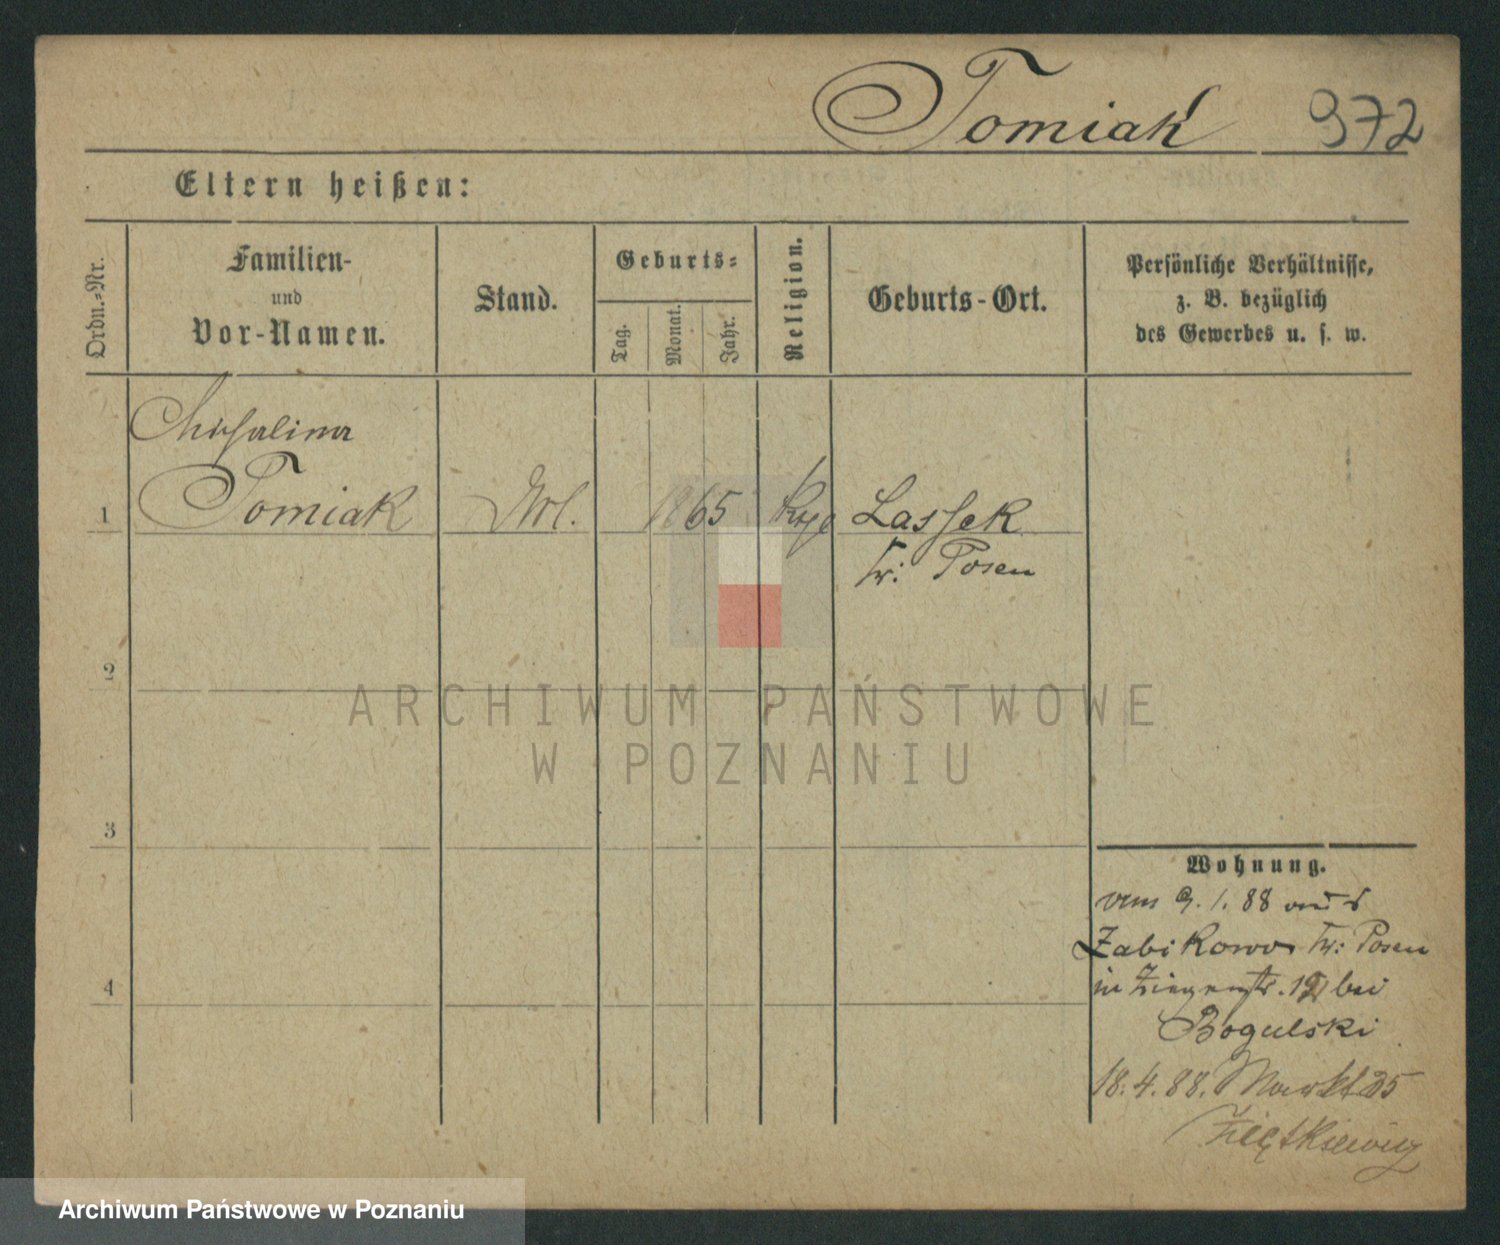 Tomiak 972
Eltern heißen:
Ordn.-Nr.
Familien-
und
Vor-Namen.
Stand.
Geburts-
Tag.
Monat.
Jahr.
Religion.
Geburts-Ort.
Persönliche Verhältnisse,
z. B. bezüglich
des Gewerbes u. s. w.
Michalina
1 Tomiak 1865 Lassek
Kr: Posen
2
3
4
Wohnung.
vom 9. 1. 88 aus
Zabikowo Kr: Posen
in bei
Bogulski
18. 4. 88. Markt
Ziętkiewicz
ARCHIWUM PAŃSTWOWE
W POZNANIU
Archiwum Państwowe w Poznaniu